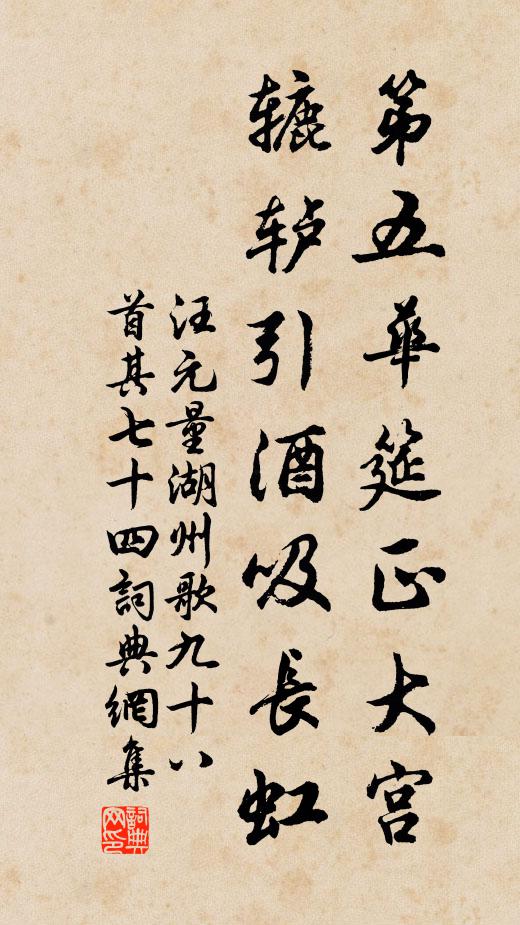 第五華筵正大宫
辘轳引酒吸長虹
汪元量湖州歌九十八
首其七十四詞典網集
詞典网印